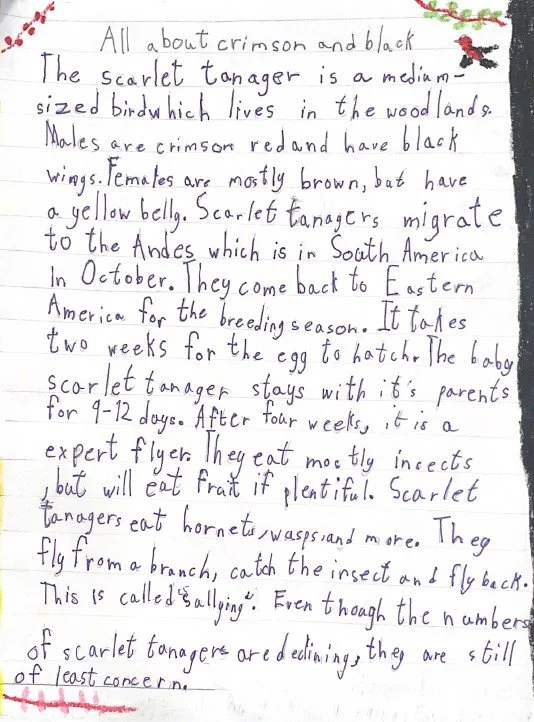 All about crimson and black
The scarlet tanager is a medium-
sized bird which lives in the woodlands.
Males are crimson red and have black
wings. Females are mostly brown, but have
a yellow belly. Scarlet tanagers migrate
to the Andes which is in South America
In October. They come back to Eastern
America for the breeding season. It takes
two weeks for the egg to hatch. The baby
scarlet tanager stays with it's parents
for 9-12 days. After four weeks, it is a
expert flyer. They eat mostly insects
, but will eat fruit if plentiful. Scarlet
tanagers eat hornets, wasps, and more. They
fly from a branch, catch the insect and fly back.
This is called "sallying". Even though the numbers
of scarlet tanagers are declining, they are still
of least concern.